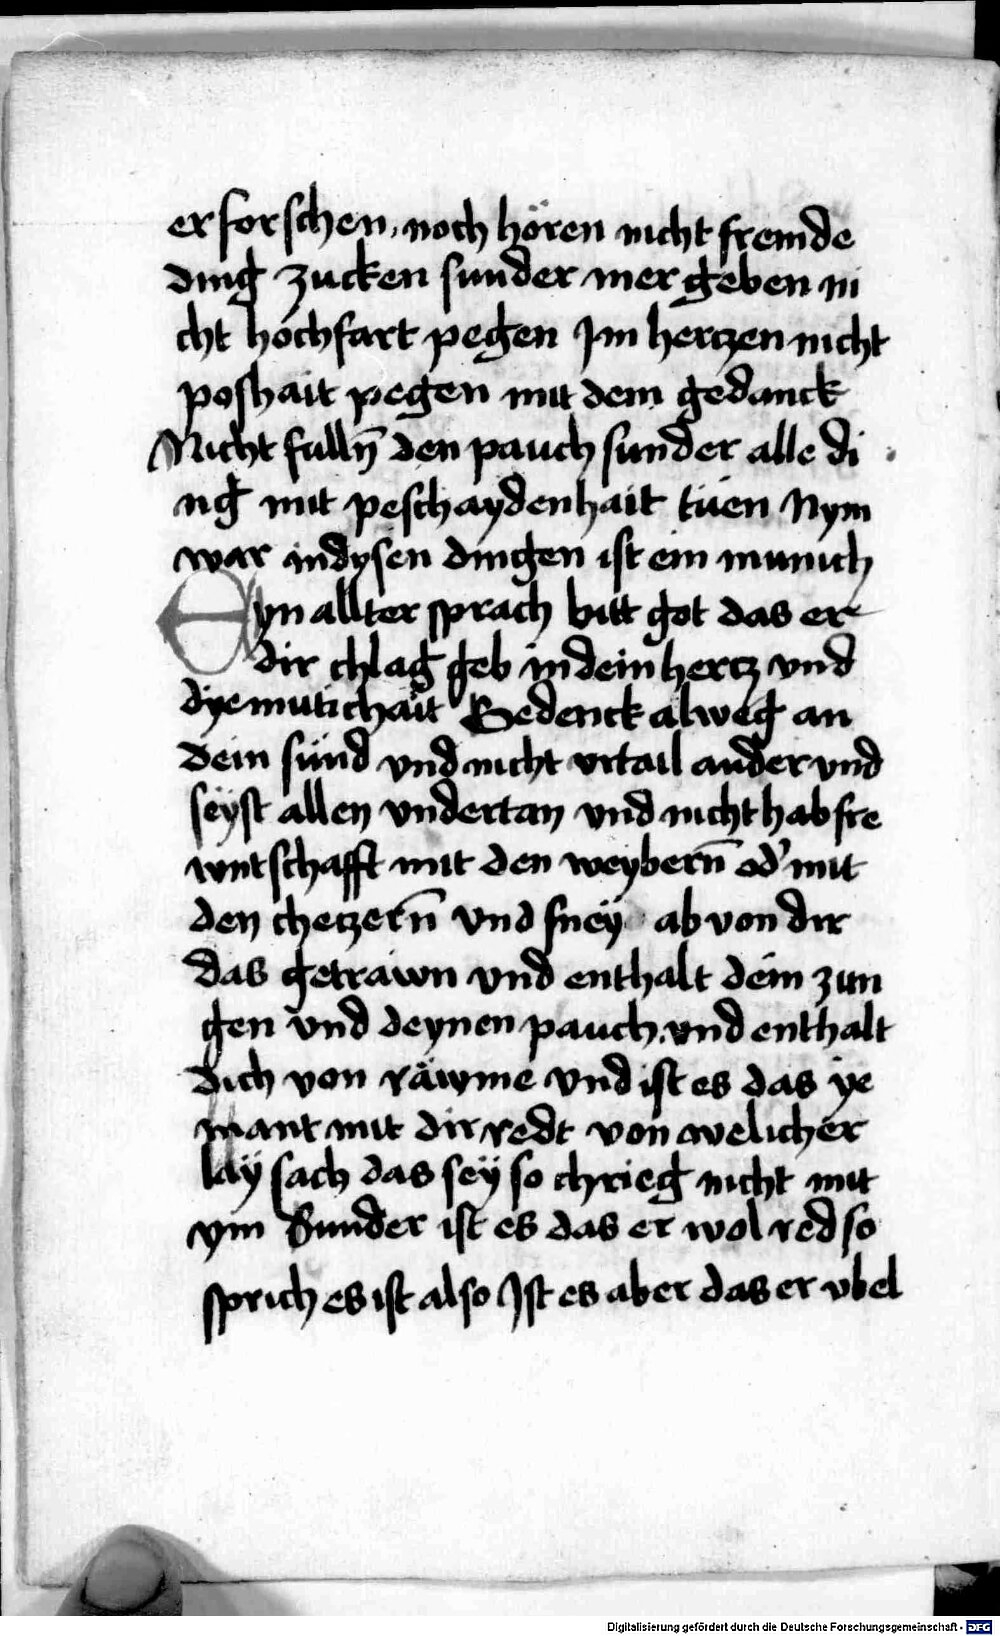 erforschen, noch hören nicht fremde
ding zucken sunder mer geben ni
cht hochfart pegen Jm hertzen nicht
poshait pegen mit dem gedanck
Nicht fullñ den pauch sunder alle di
ng mit peschaydenhait tüen Nym
war indysen dingen ist ein munich
Eyn allter sprach bitt got das er
dir chlag geb in dein hertz vnd
dyemutichait Gedenck alweg an
dein sünd vnd nicht vrtail ander vnd
seyst allen vndertan vnd nicht hab fre
wntschafft mit den weyberñ od' mit
den chetzerñ vnd sneÿ ab von dir
das getrawn vnd enthalt dein zun
gen vnd deynen pauch. vnd enthalt
dich von räwme vnd ist es das ÿe
mant mit dir redt von welicher
laÿ sach das seÿ so chrieg nicht mit
ym Sunder ist es das er wol red so
sprich es ist also Jst es aber das er vbel
Digitalisierung gefördert durch die Deutsche Forschungsgemeinschaft - DFG